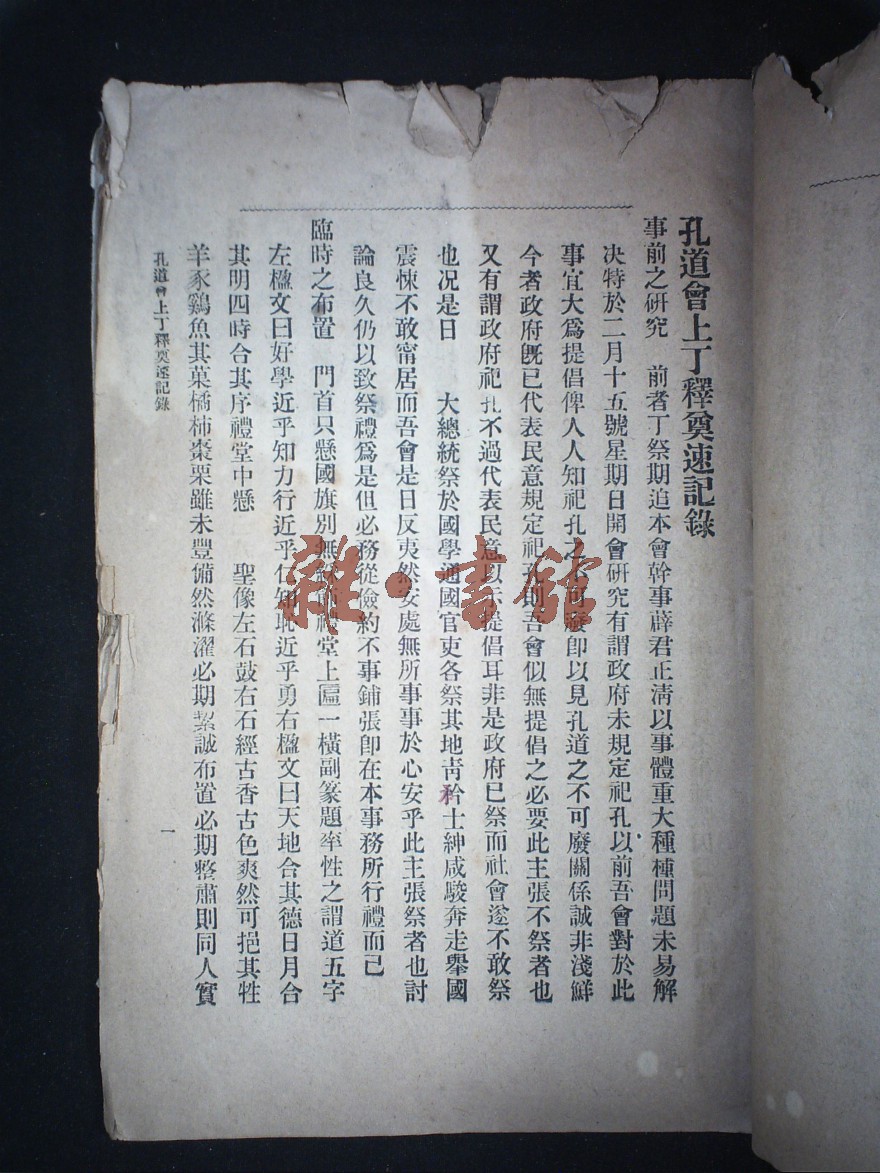 孔道會上丁釋奠速記錄
事前之研究　前者丁祭期迫本會幹事薛君正清以事體重大種種問題未易解
决特於二月十五號星期日開會研究有謂政府未規定祀孔以前吾會對於此
事宜大爲提倡俾人人知祀孔之不可廢即以見孔道之不可廢關係誠非淺鮮
今者政府旣已代表民意規定祀孔則吾會似無提倡之必要此主張不祭者也
又有謂政府祀孔不過代表民意以示提倡耳非是政府已祭而社會遂不敢祭
也况是日　大總統祭於國學通國官吏各祭其地靑矜士紳咸駿奔走舉國
震悚不敢甯居而吾會是日反夷然安處無所事事於心安乎此主張祭者也討
論良久仍以致祭禮爲是但必務從儉約不事鋪張卽在本事務所行禮而已
臨時之布置　門首只懸國旗別無綵飾禮堂上匾一橫副篆題率性之謂道五字
左楹文曰好學近乎知力行近乎仁知恥近乎勇右楹文曰天地合其德日月合
其明四時合其序禮堂中懸　聖像左石鼓右石經古香古色爽然可挹其牲
羊豕鷄魚其菓橘柿棗栗雖未豐備然滌濯必期絜誠布置必期整肅則同人實
孔道會上丁釋奠速記錄
一
雜·書館